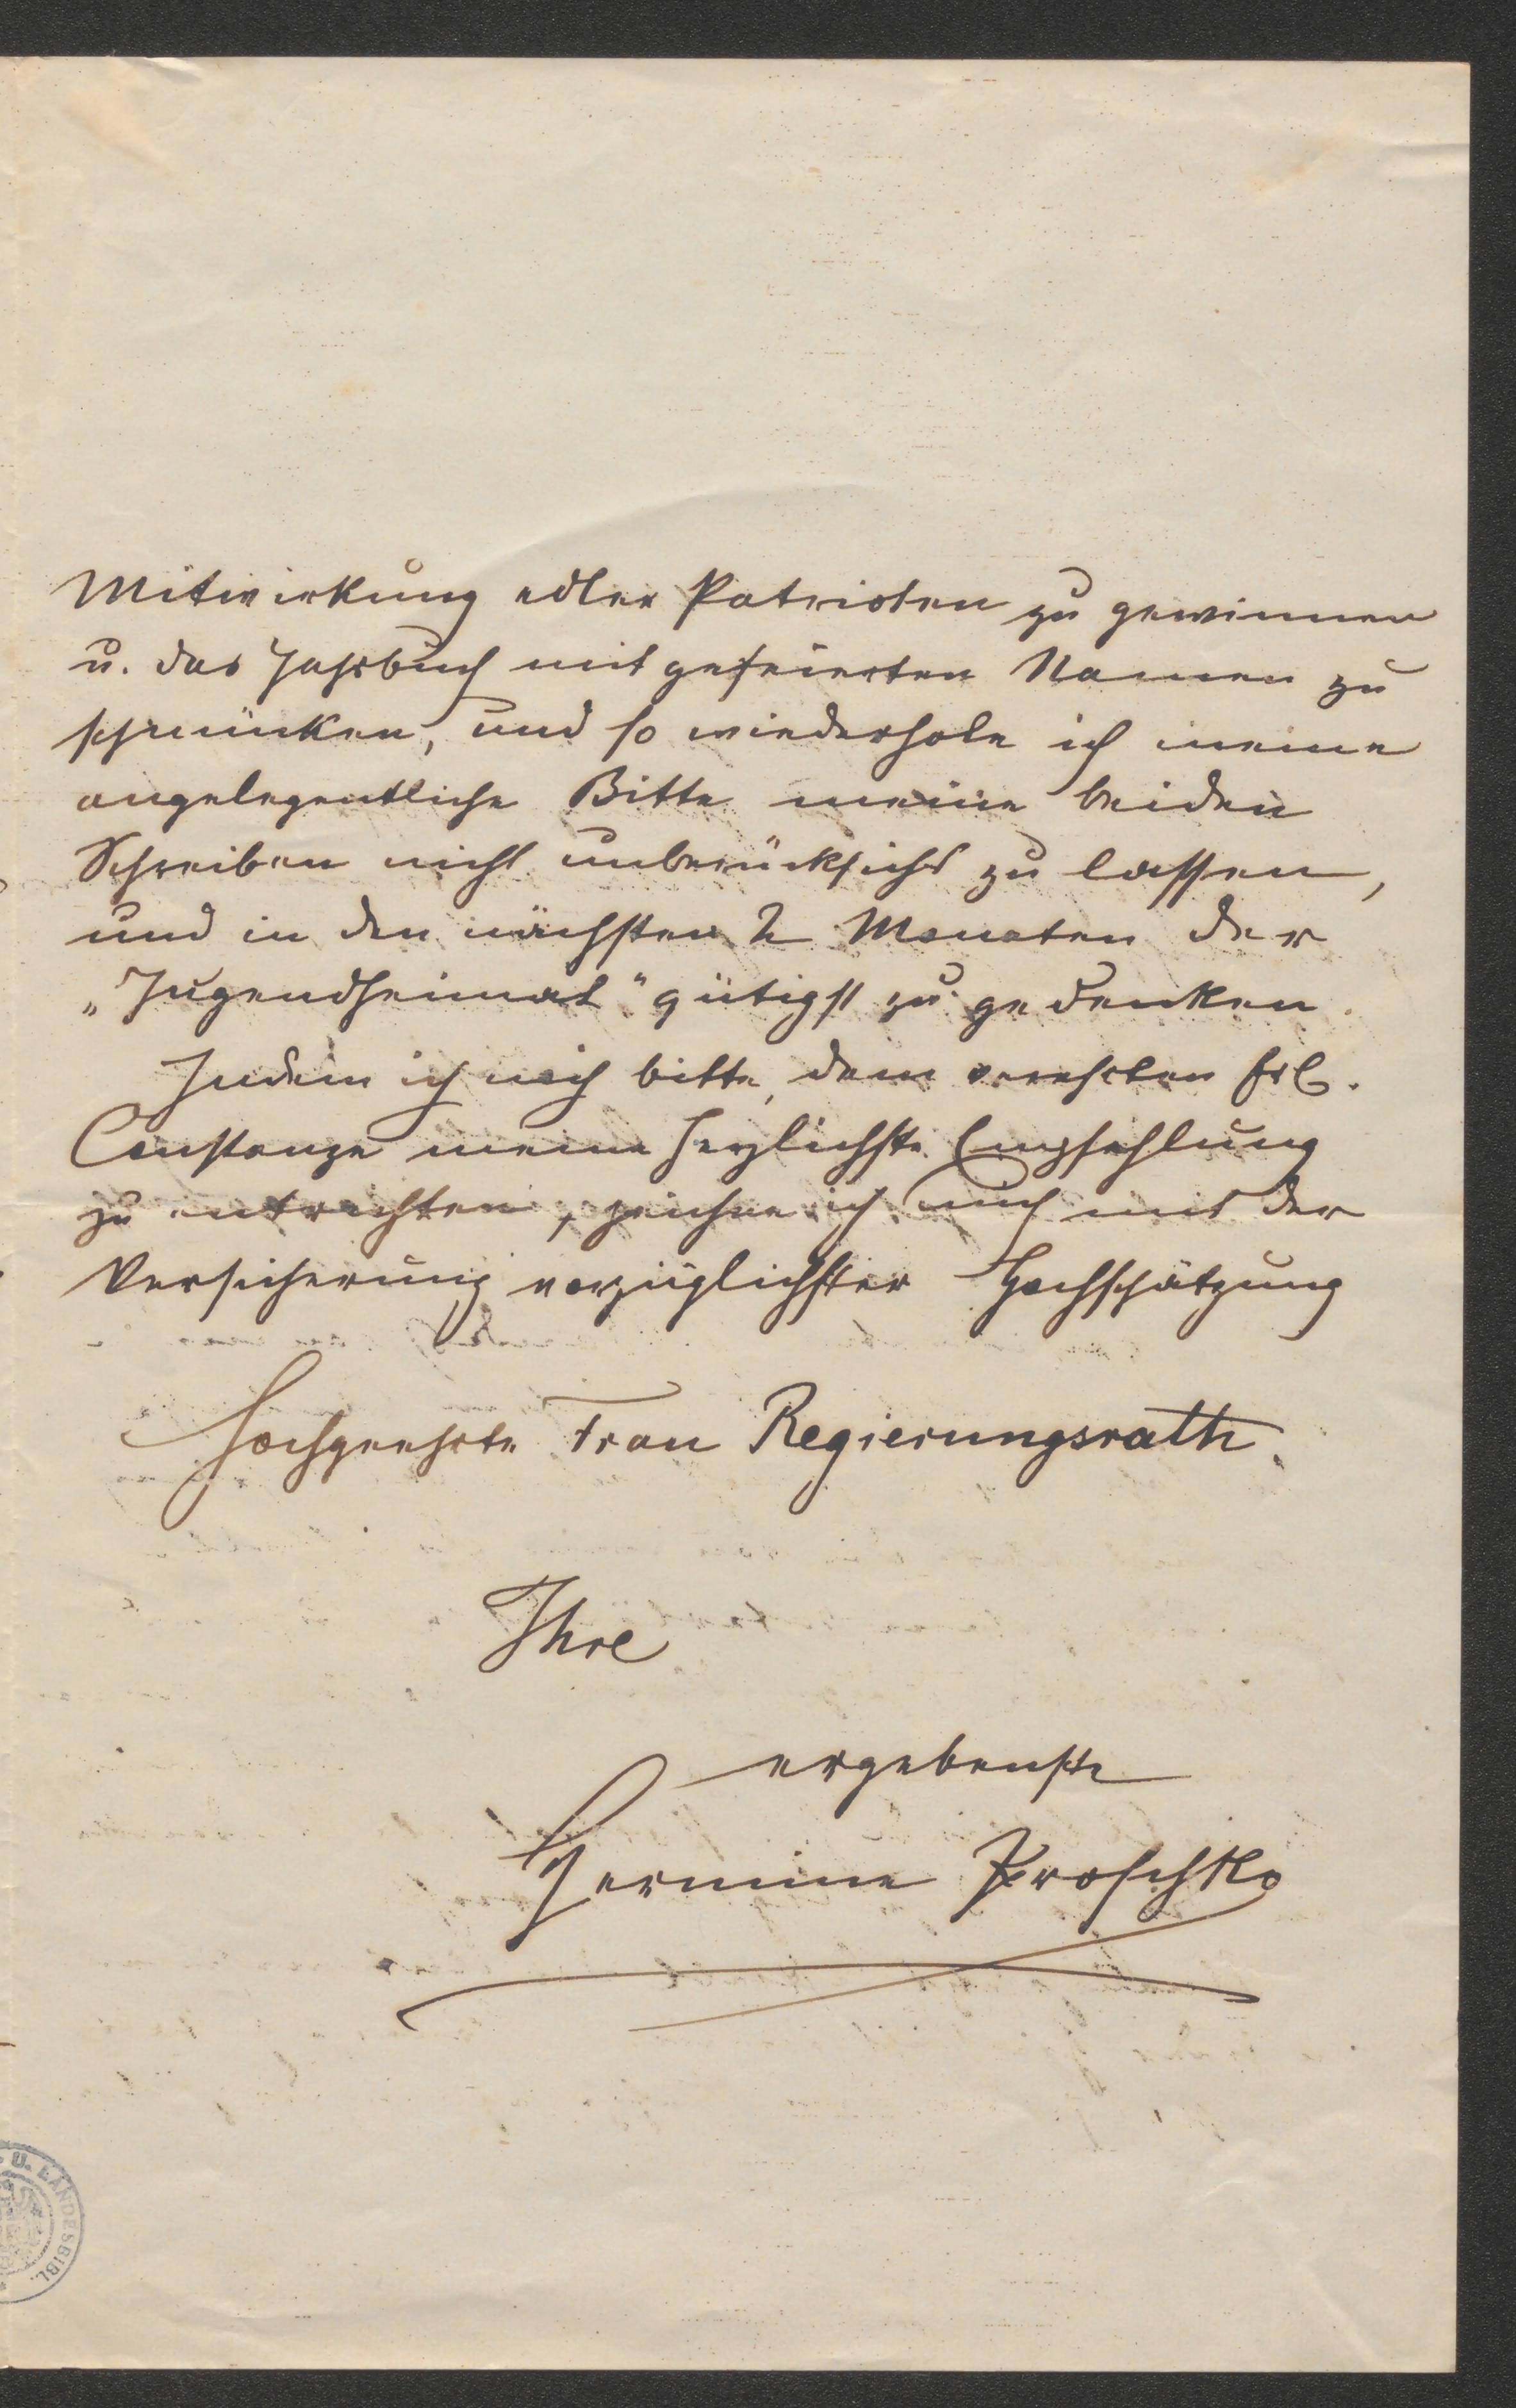 Mitwirkung edler Patrioten zu gewinnen
u. das Jahrbuch mit gefeierten Namen zu
schmücken, und so wiederhole ich meine
angelegentliche Bitte meine beiden
Schreiben nicht unberücksicht zu lassen,
und in den nächsten 2 Monaten der
„Jugendheimat" gütigst zu gedenken.
Indem ich noch bitte, dem verehrten Frl.
Constanze meine herzlichste Empfehlung
zu entrichten, zeichne ich mich mit der
Versicherung vorzüglichster Hochschätzung
Hochgeehrte Frau Regierungsrath.
Ihre
ergebenste
Hermine Proschko
U. LANDESBIBL.